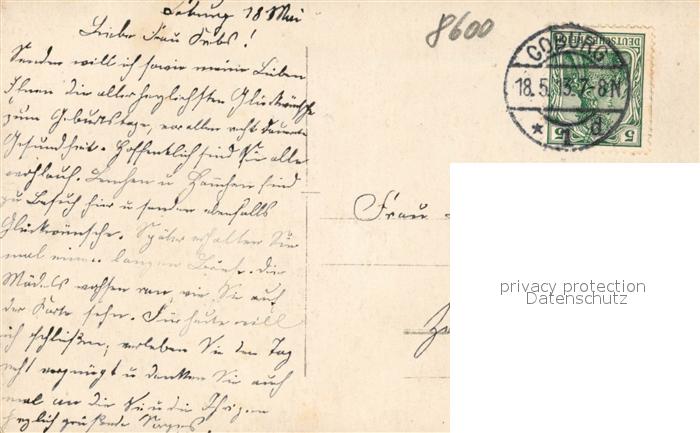 Coburg 18 Mai
Liebe Frau Krebs!
Senden will ich sowie meine Lieben
Ihnen die allerherzlichsten Glückwünsche
zum Geburtstage, vor allem recht dauernde
Gesundheit. Hoffentlich sind Sie alle
wohlauf. Lenchen u Hannchen sind
zu Besuch hier u senden ebenfalls
Glückwünsche. Später erhalten Sie
mal einen langen Brief. Die
Mädels wachsen ran, wie Sie auf
der Karte sehn. Für heute will
ich schließen; verleben Sie den Tag
recht vergnügt u denken Sie auch
mal an die Sie u die Ihrigen
herzlich grüßende
8600
COBURG
18.5.13.7-8N
* 1 d
DEUTSCHES REICH
5 5
Frau
privacy protection
Datenschutz